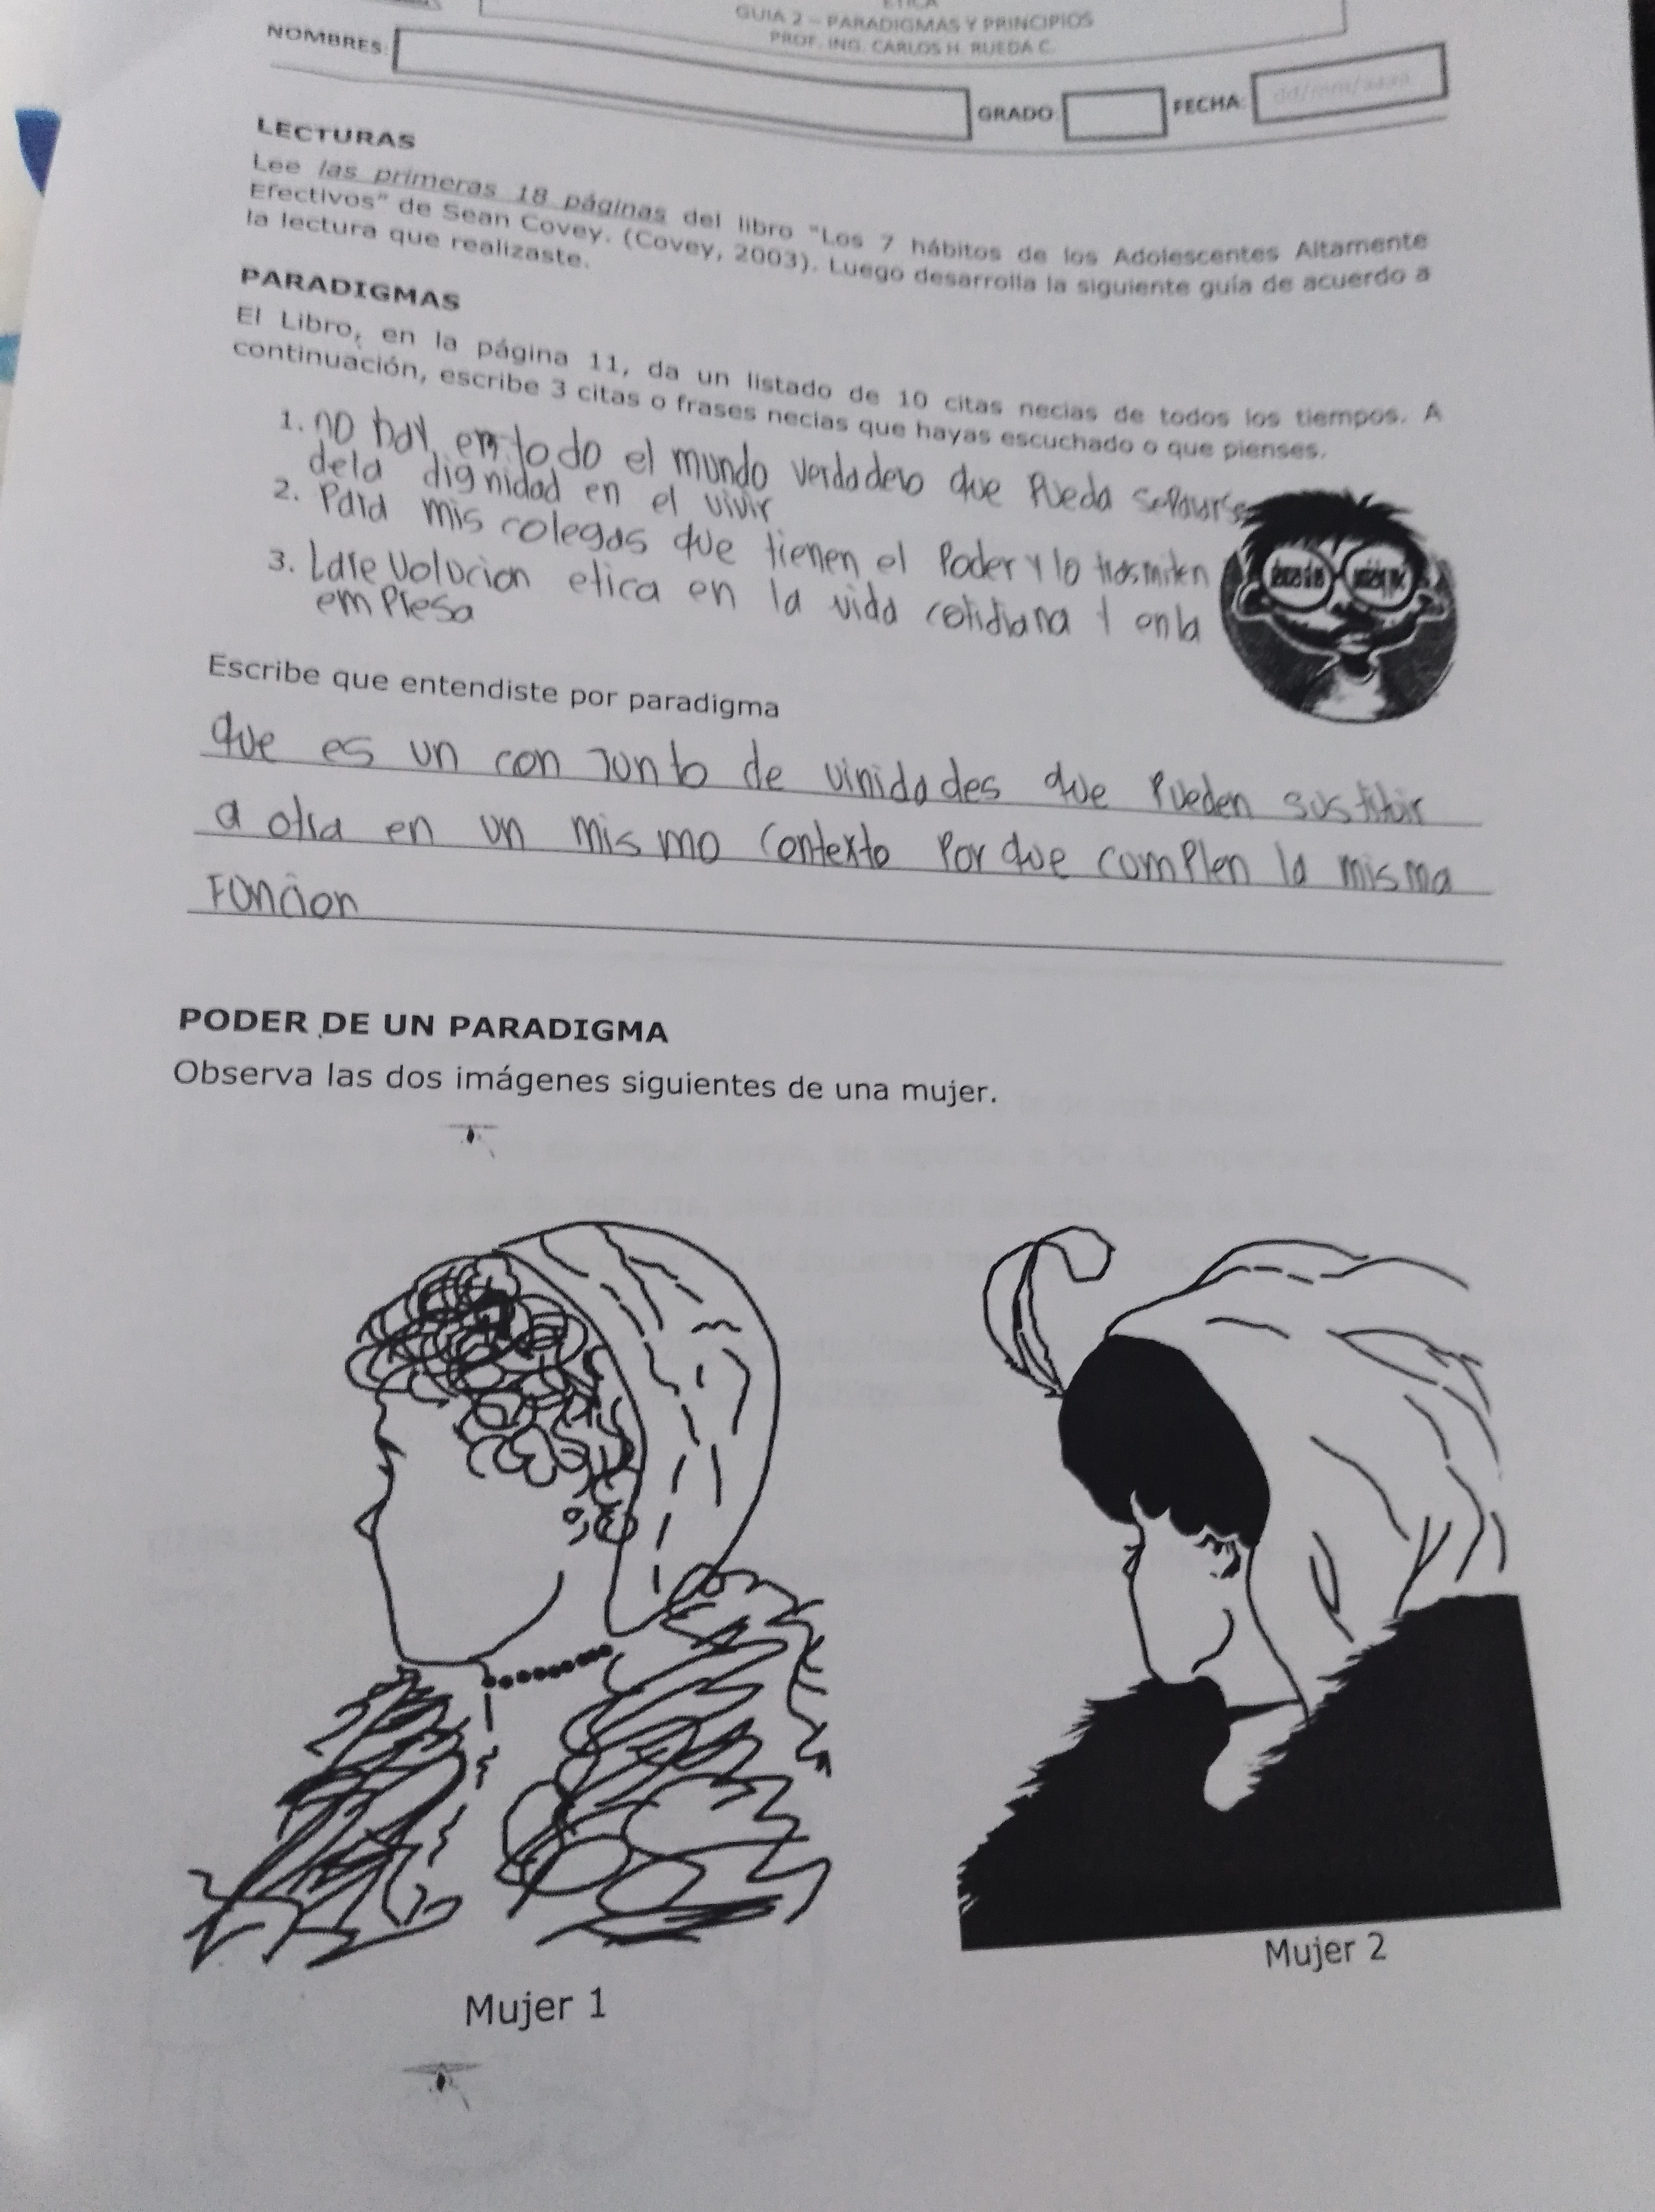 ETICA
GUIA 2 – PARADIGMAS Y PRINCIPIOS
PROF. ING. CARLOS H. RUEDA C.
NOMBRES:
GRADO
FECHA:
dd/mm/aaaa
LECTURAS
Lee las primeras 18 páginas del libro "Los 7 hábitos de los Adolescentes Altamente
Efectivos" de Sean Covey. (Covey, 2003). Luego desarrolla la siguiente guía de acuerdo a
la lectura que realizaste.
PARADIGMAS
El Libro, en la página 11, da un listado de 10 citas necias de todos los tiempos. A
continuación, escribe 3 citas o frases necias que hayas escuchado o que pienses.
1. no hay en todo el mundo verdadero que pueda separarse
dela dignidad en el vivir
2. Para mis colegas que tienen el Poder y lo trasmiten
3. La revolucion etica en la vida cotidiana y en la
empresa
Escribe que entendiste por paradigma
que es un con Junto de vinidades que pueden sustituir
a otra en un mismo contexto Por que complen la misma
Funcion
PODER DE UN PARADIGMA
Observa las dos imágenes siguientes de una mujer.
Mujer 1
Mujer 2